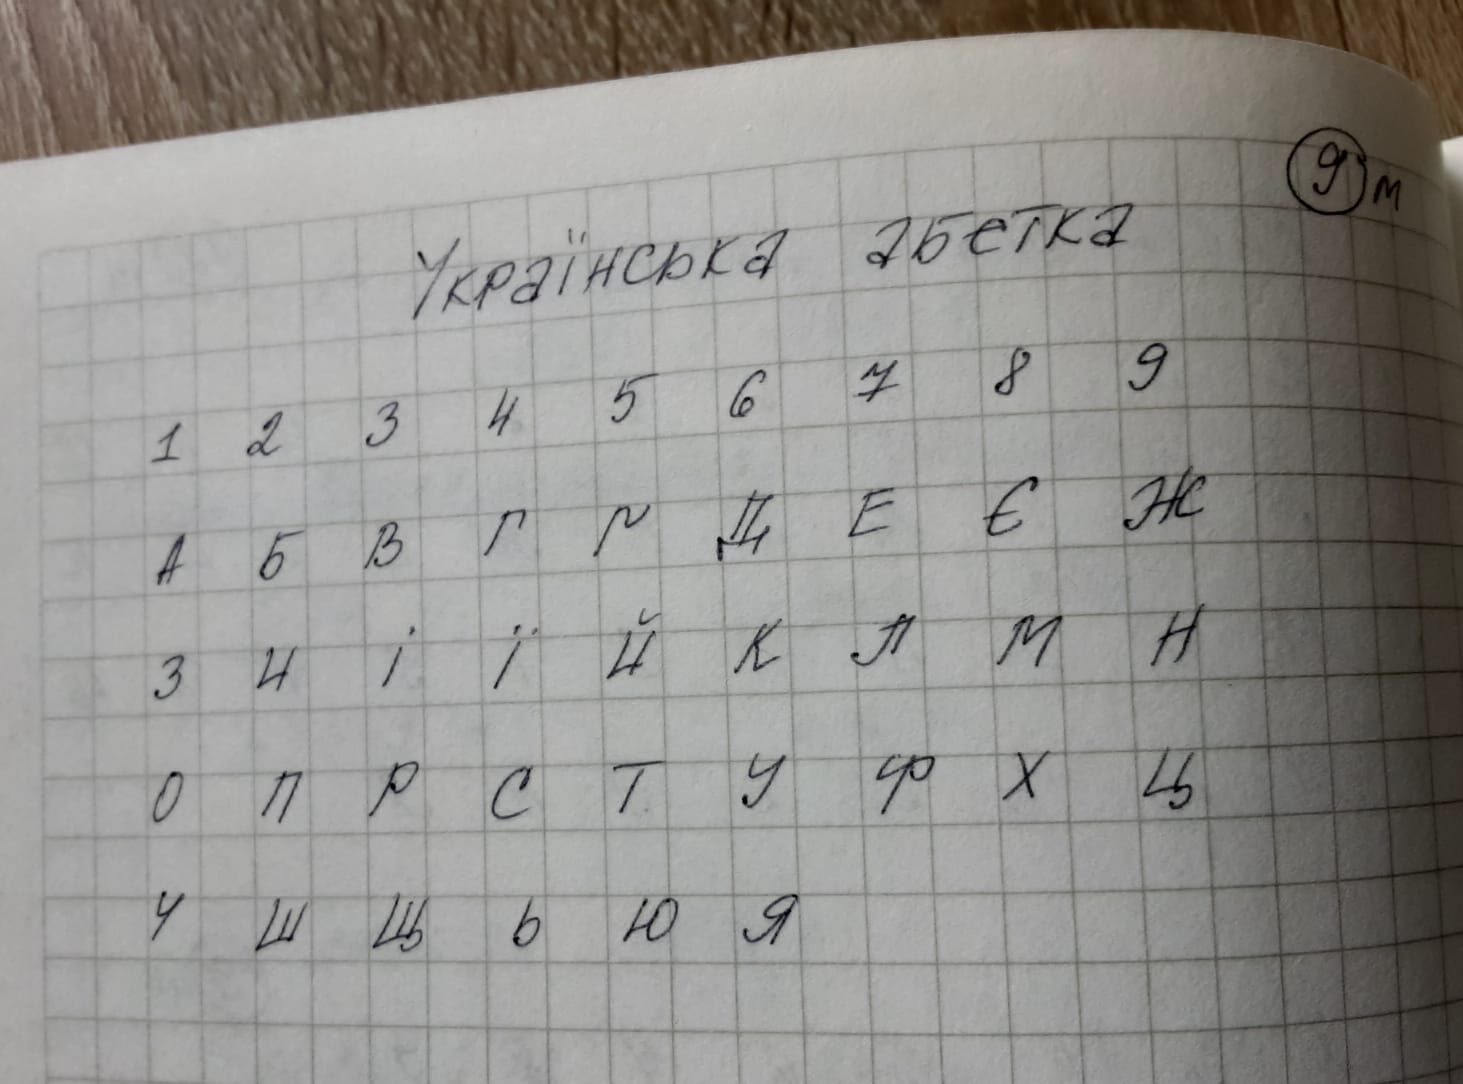 9 м
Українська абетка
1 2 3 4 5 6 7 8 9
А Б В Г Ґ Д Е Є Ж
З И І Ї Й К Л М Н
О П Р С Т У Ф Х Ц
Ч Ш Щ Ь Ю Я